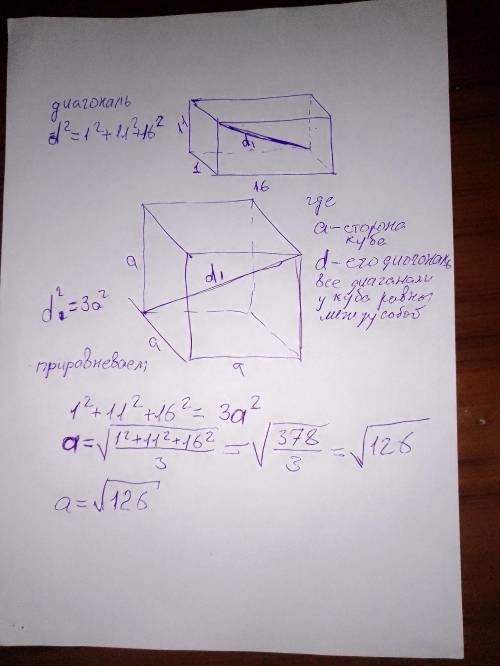 диагональ
d²=1²+11²+16²
11
d₁
1
16
где
a-сторона
куба
d-его диогональ
все диаганали
у куба равны
между собой
a
d₁
d₁²=3a²
a
a
приравневаем
1²+11²+16²=3a²
a=√(1²+11²+16²/3)=√(378/3)=√126
a=√126